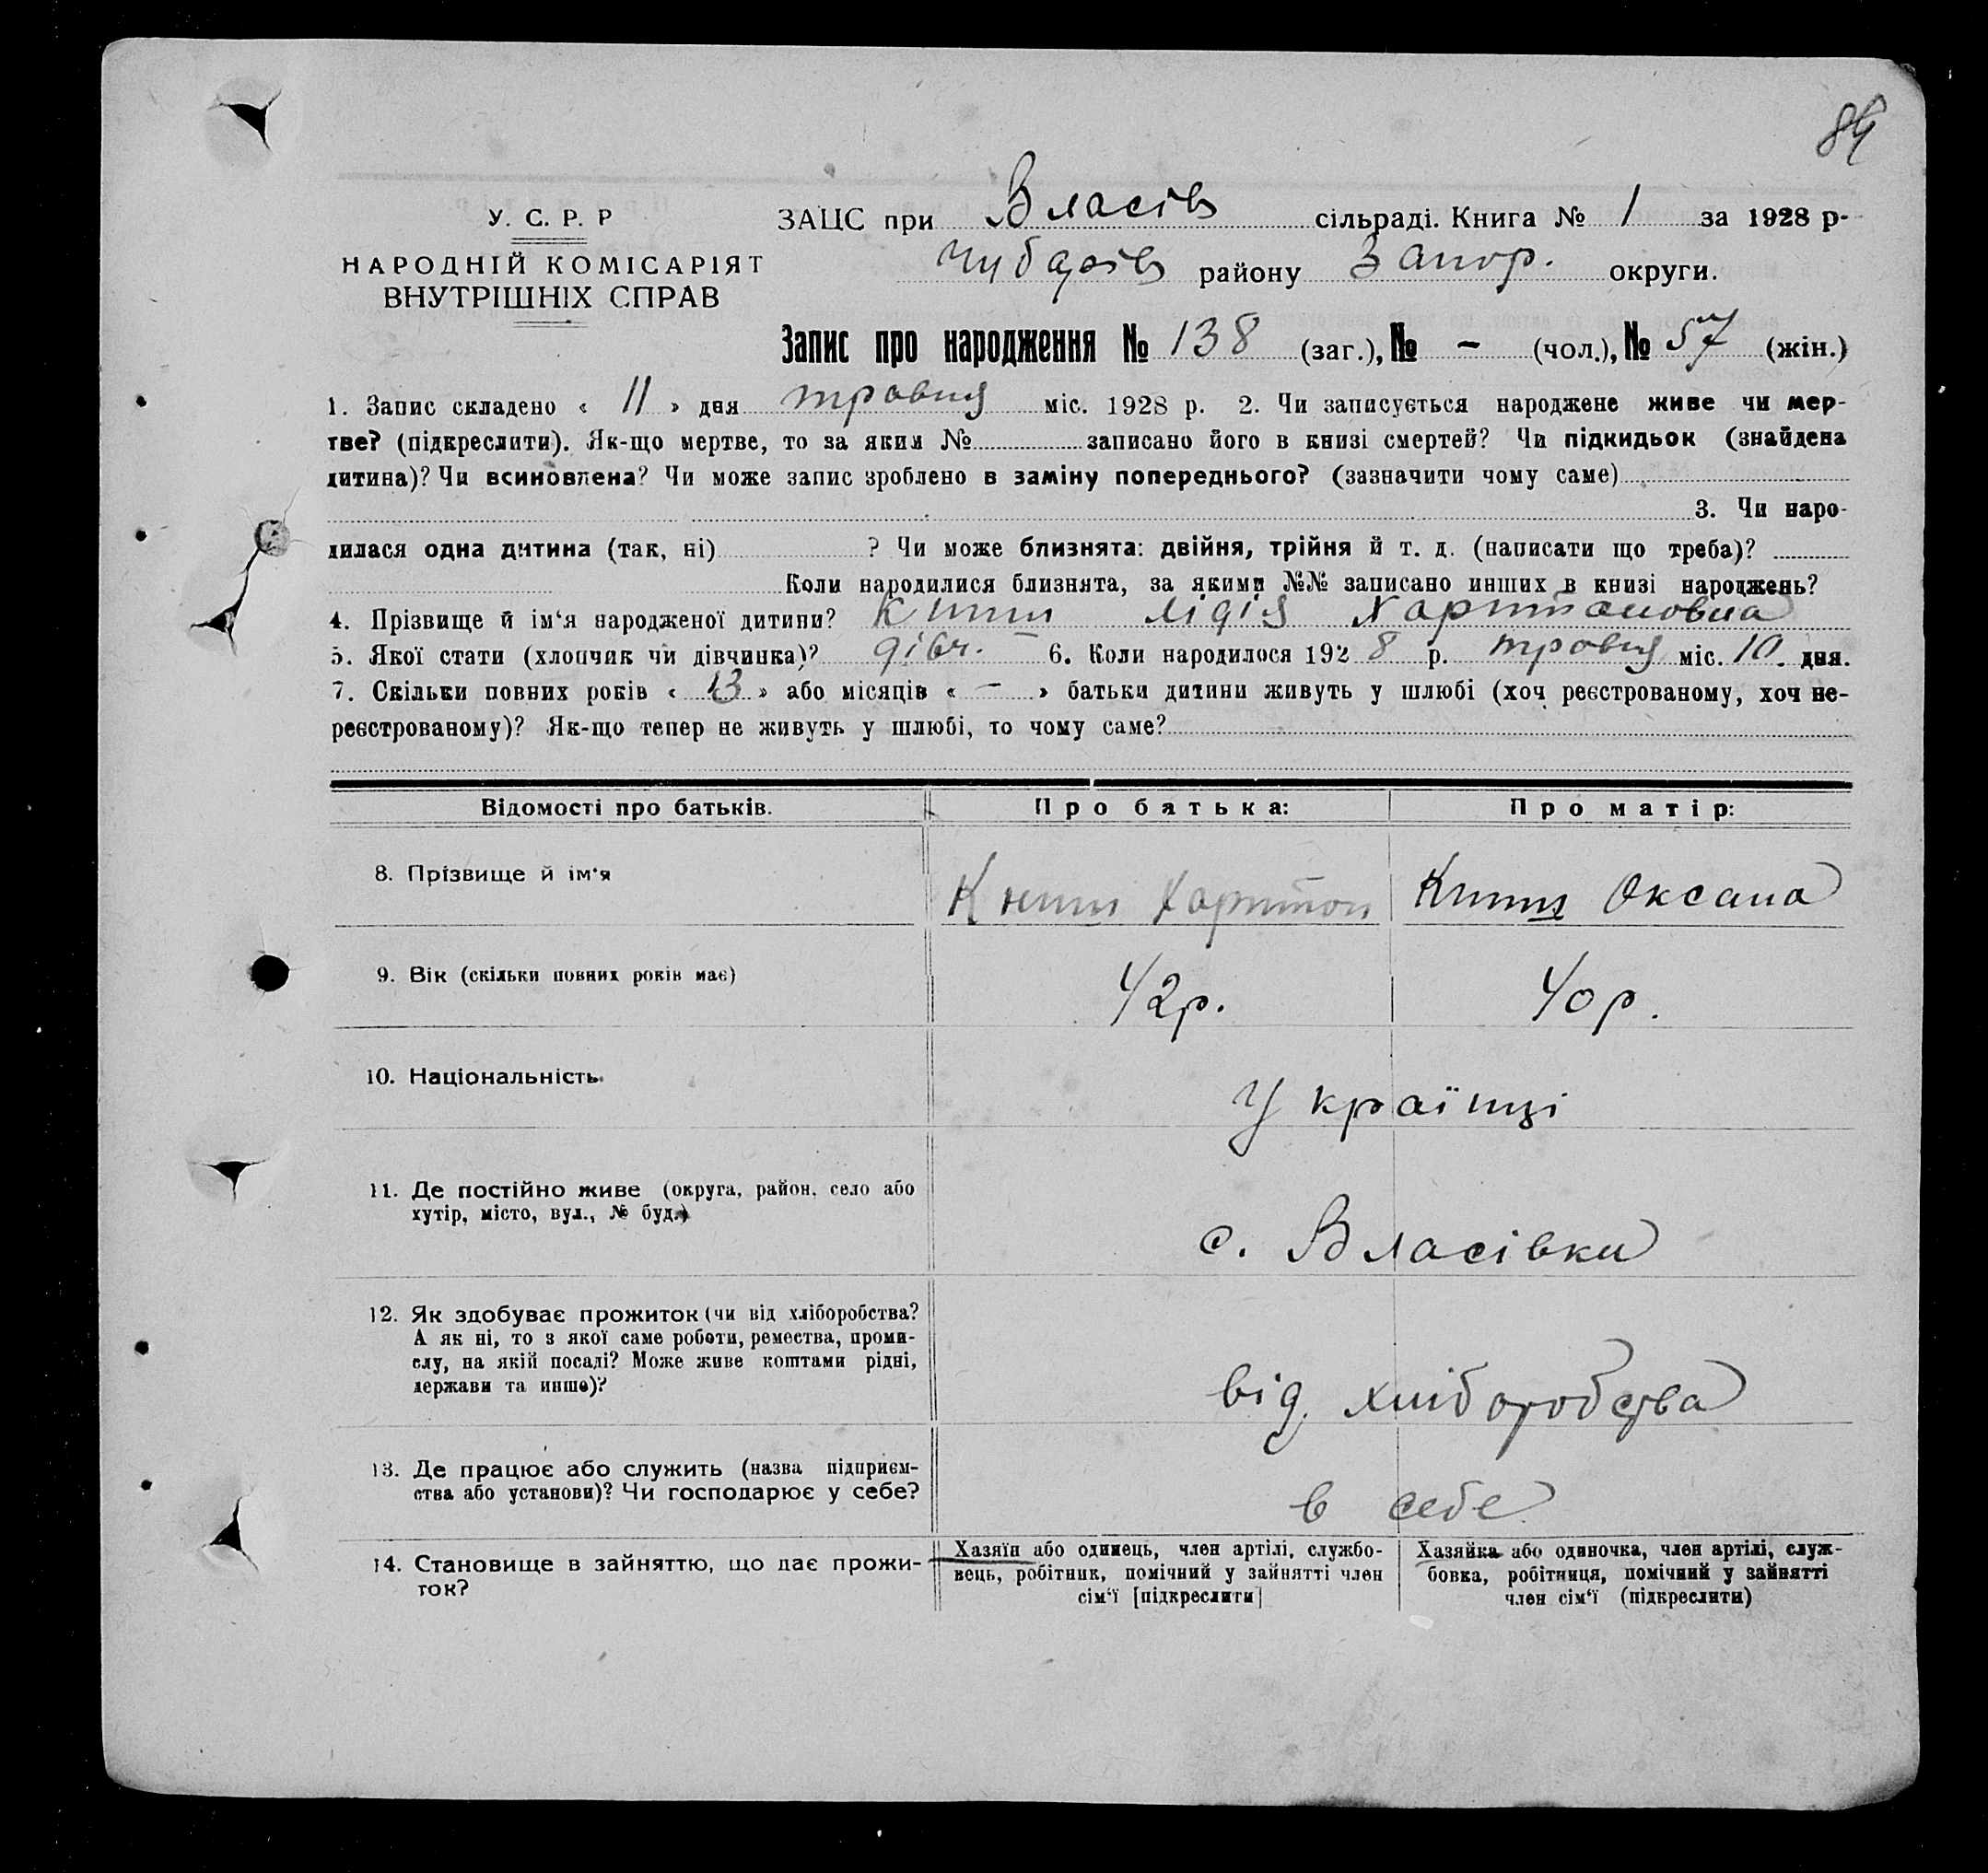 84
У. С. Р. Р
НАРОДНІЙ КОМІСАРІЯТ
ВНУТРІШНІХ СПРАВ
ЗАЦС при Власів сільраді. Книга № 1 за 1928 р-
Чубарів району Запор. округи.
Запис про народження № 138 (заг.), № - (чол.), № 57 (жін.)
1. Запис складено « 11 » дня травня міс. 1928 р. 2. Чи записується народжене живе чи мер-
тве? (підкреслити). Як-що мертве, то за яким № записано його в книзі смертей? Чи підкидьок (знайдена
дитина)? Чи всиновлена? Чи може запис зроблено в заміну попереднього? (зазначити чому саме)
3. Чи наро-
дилася одна дитина (так, ні) ? Чи може близнята: двійня, трійня й т. д. (написати що треба)?
Коли народилися близнята, за якими №№ записано инших в книзі народжень?
4. Прізвище й ім‘я народженої дитини? Книш Лідія Харитоновна
5. Якої стати (хлопчик чи дівчинка)? дівч. — 6. Коли народилося 192 8 р. травня міс. 10. дня.
7. Скільки повних років « 13 » або місяців « – » батьки дитини живуть у шлюбі (хоч реєстрованому, хоч не-
реєстрованому)? Як-що тепер не живуть у шлюбі, то чому саме?
Відомості про батьків. Про батька: Про матір:
8. Прізвище й ім‘я Книш Харитон Книш Оксана
9. Вік (скільки повних років має) 42р. 40р.
10. Національність Українці
11. Де постійно живе (округа, район, село або
хутір, місто, вул., № буд.) с. Власівки
12. Як здобуває прожиток (чи від хліборобства?
А як ні, то з якої саме роботи, ремества, проми-
слу, на якій посаді? Може живе коштами рідні,
держави та инше)? від хліборобства
13. Де працює або служить (назва підприєм-
ства або установи)? Чи господарює у себе? в себе
14. Становище в зайняттю, що дає прожи-
ток?
Хазяїн або одинець, член артілі, службо-
вець, робітник, помічний у зайнятті член
сім‘ї [підкреслити]
Хазяйка або одиночка, член артілі, служ-
бовка, робітниця, помічний у зайнятті
член сім‘ї (підкреслити)